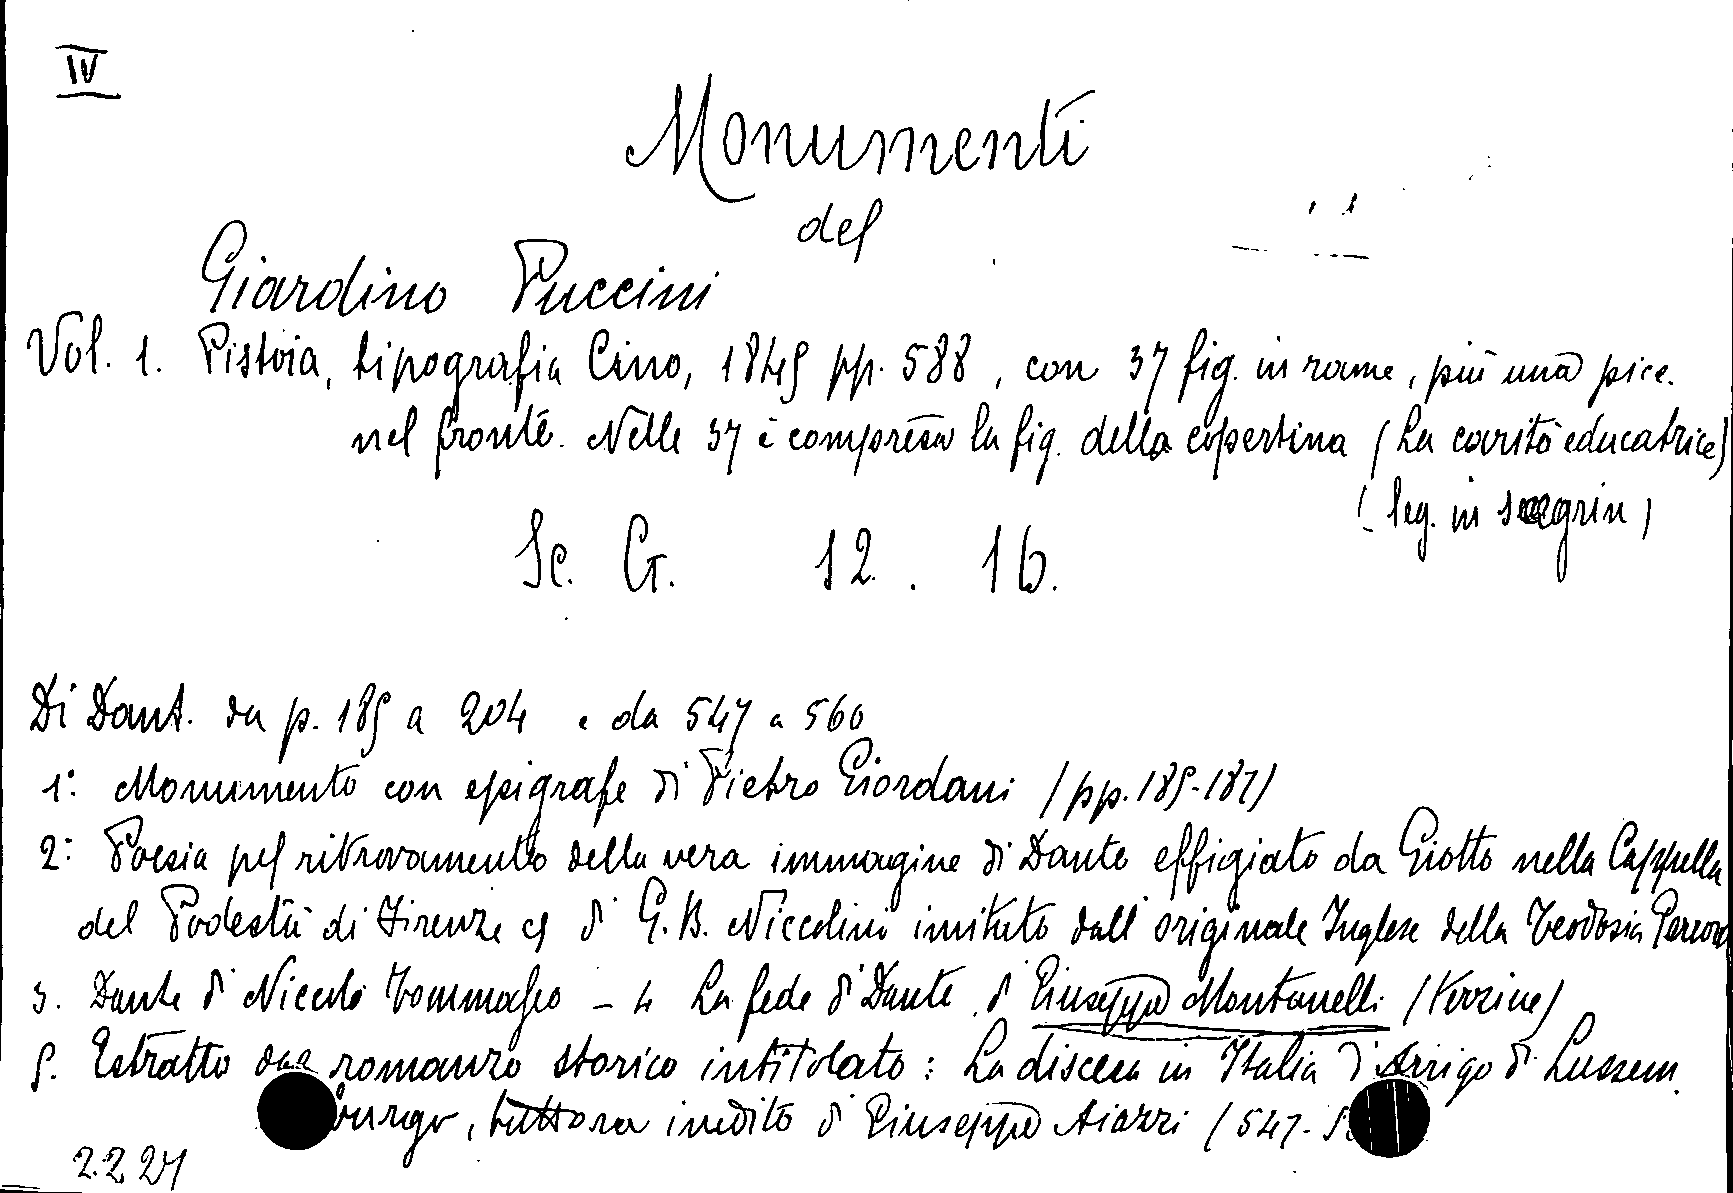 IV
Monumenti
del
Giardino Puccini
Vol. 1. Pistoia, tipografia Cino, 1845 pp. 588, con 37 fig. in rame, più una picc.
nel fronte. Nelle 37 è compresa la fig. della copertina (La carità educatrice)
(leg. in zegrin)
Sc. G. 12. 16.
Di Dant. da p. 185 a 204 e da 547 a 560
1° Monumento con epigrafe di Pietro Giordani (pp. 185-187)
2° Poesia pel ritrovamento della vera immagine di Dante effigiato da Giotto nella Cappella
del Podestà di Firenze di G. B. Niccolini imitato dall'originale Inglese della Teodosia
3. Dante di Niccolò Tommaseo - 4 La fede di Dante di Giuseppe Montanelli (Terzine)
5. Estratto dal romanzo storico intitolato: La discesa in Italia d'Arrigo di Lussem
burgo, tuttora inedito di Giuseppe Aiazzi (547-
2227